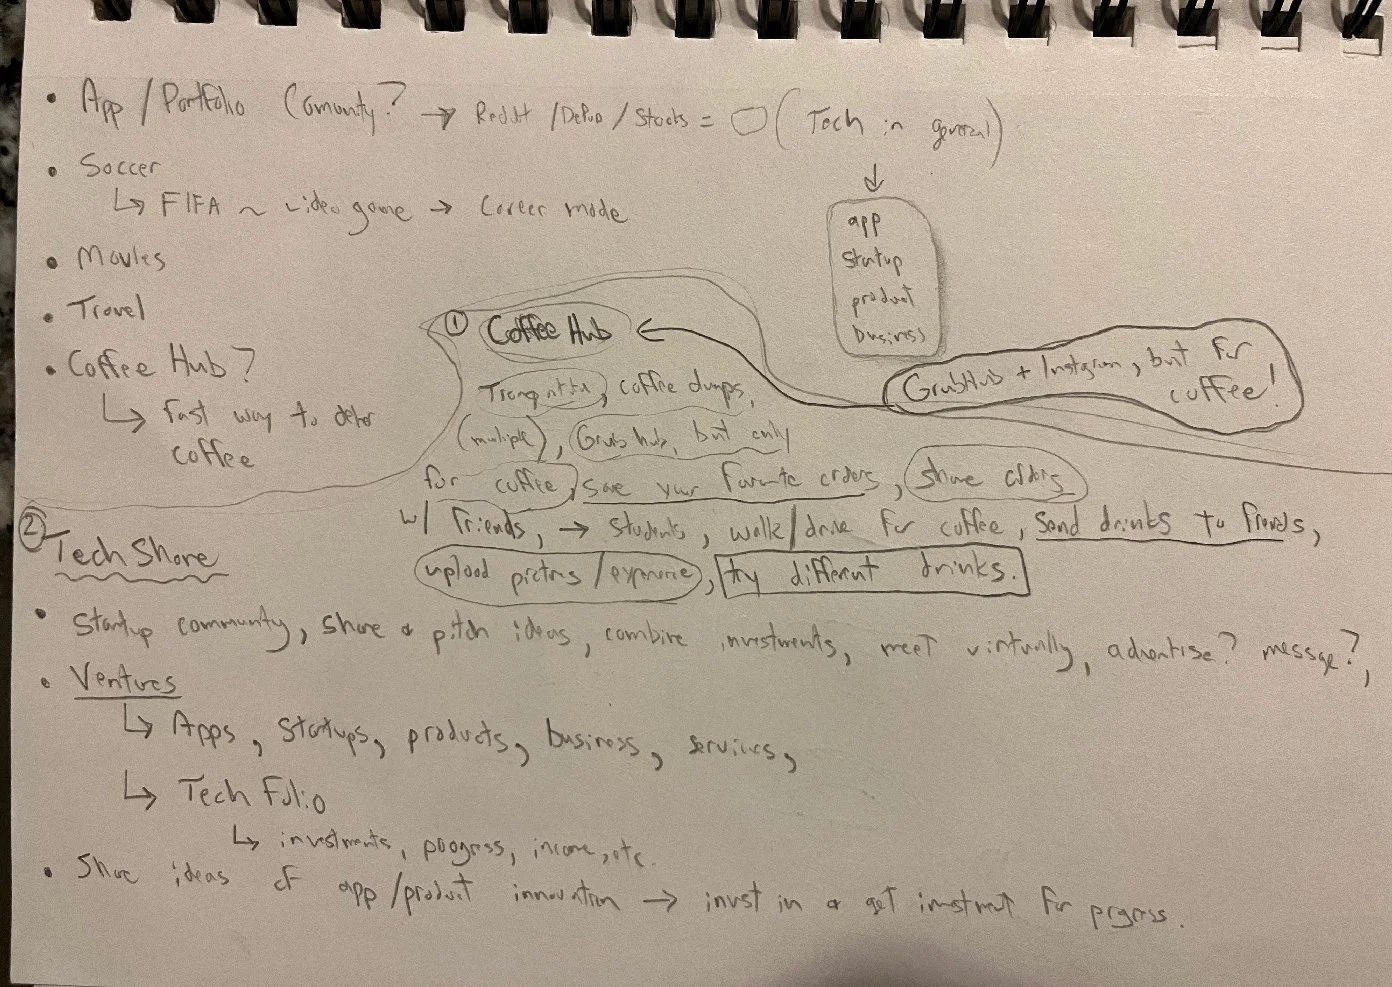 • App / Portfolio Comunity? → Reddit / / Stocks = (Tech in general)
• Soccer
↳ FIFA ~ video game → Career mode
app
startup
product
business
• Movies
• Travel
• Coffee Hub?
↳ fast way to coffee
① Coffee Hub
GrubHub + Instagram, but for coffee!
, coffee dumps,
(multiple), Grub hub, but only
for coffee, save your favorite orders, share orders
w/ friends, → students, walk/drive for coffee, send drinks to friends,
upload pictures / , try different drinks.
② Tech Share
• Startup community, share & pitch ideas, combine investments, meet virtually, advertise? message?,
• Ventures
↳ Apps, startups, products, business, services,
↳ Tech Folio
↳ investments, progress, income, etc.
• Share ideas of app/product innovation → invest in & get investment for prgress.